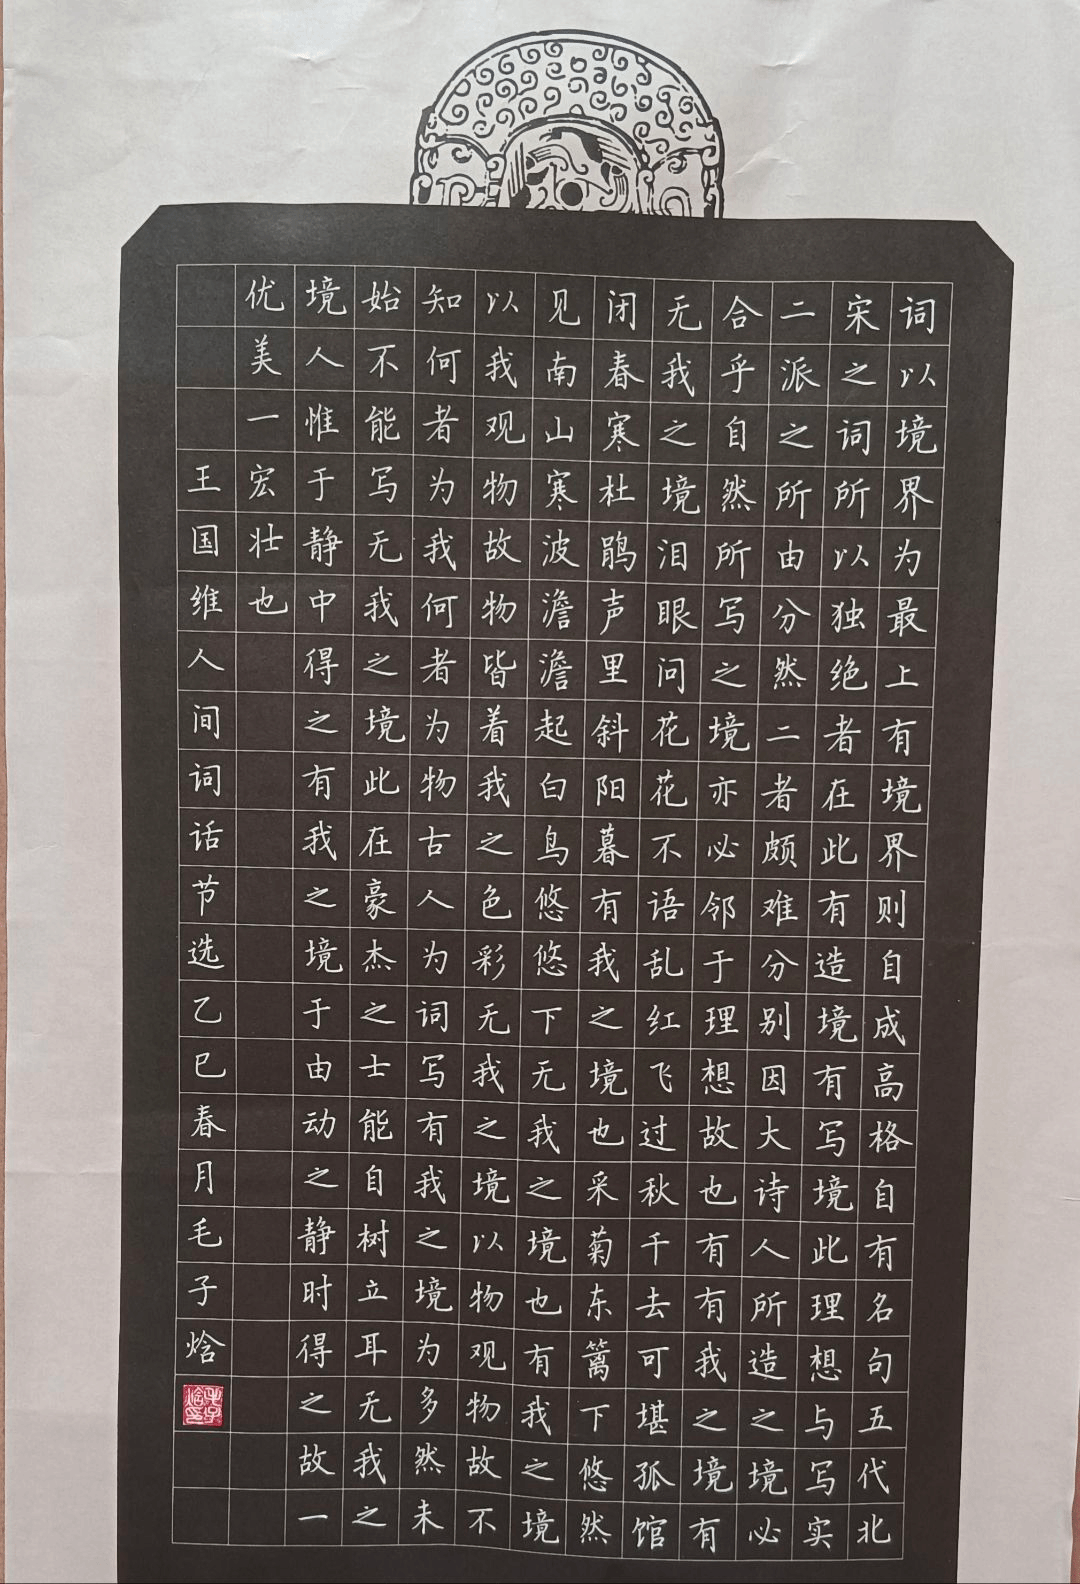 词以境界为最上有境界则自成高格自有名句五代北
宋之词所以独绝者在此有造境有写境此理想与写实
二派之所由分然二者颇难分别因大诗人所造之境必
合乎自然所写之境亦必邻于理想故也有有我之境有
无我之境泪眼问花花不语乱红飞过秋千去可堪孤馆
闭春寒杜鹃声里斜阳暮有我之境也采菊东篱下悠然
见南山寒波澹澹起白鸟悠悠下无我之境也有我之境
以我观物故物皆着我之色彩无我之境以物观物故不
知何者为我何者为物古人为词写有我之境为多然未
始不能写无我之境此在豪杰之士能自树立耳无我之
境人惟于静中得之有我之境于由动之静时得之故一
优美一宏壮也
王国维人间词话节选乙巳春月毛子焓